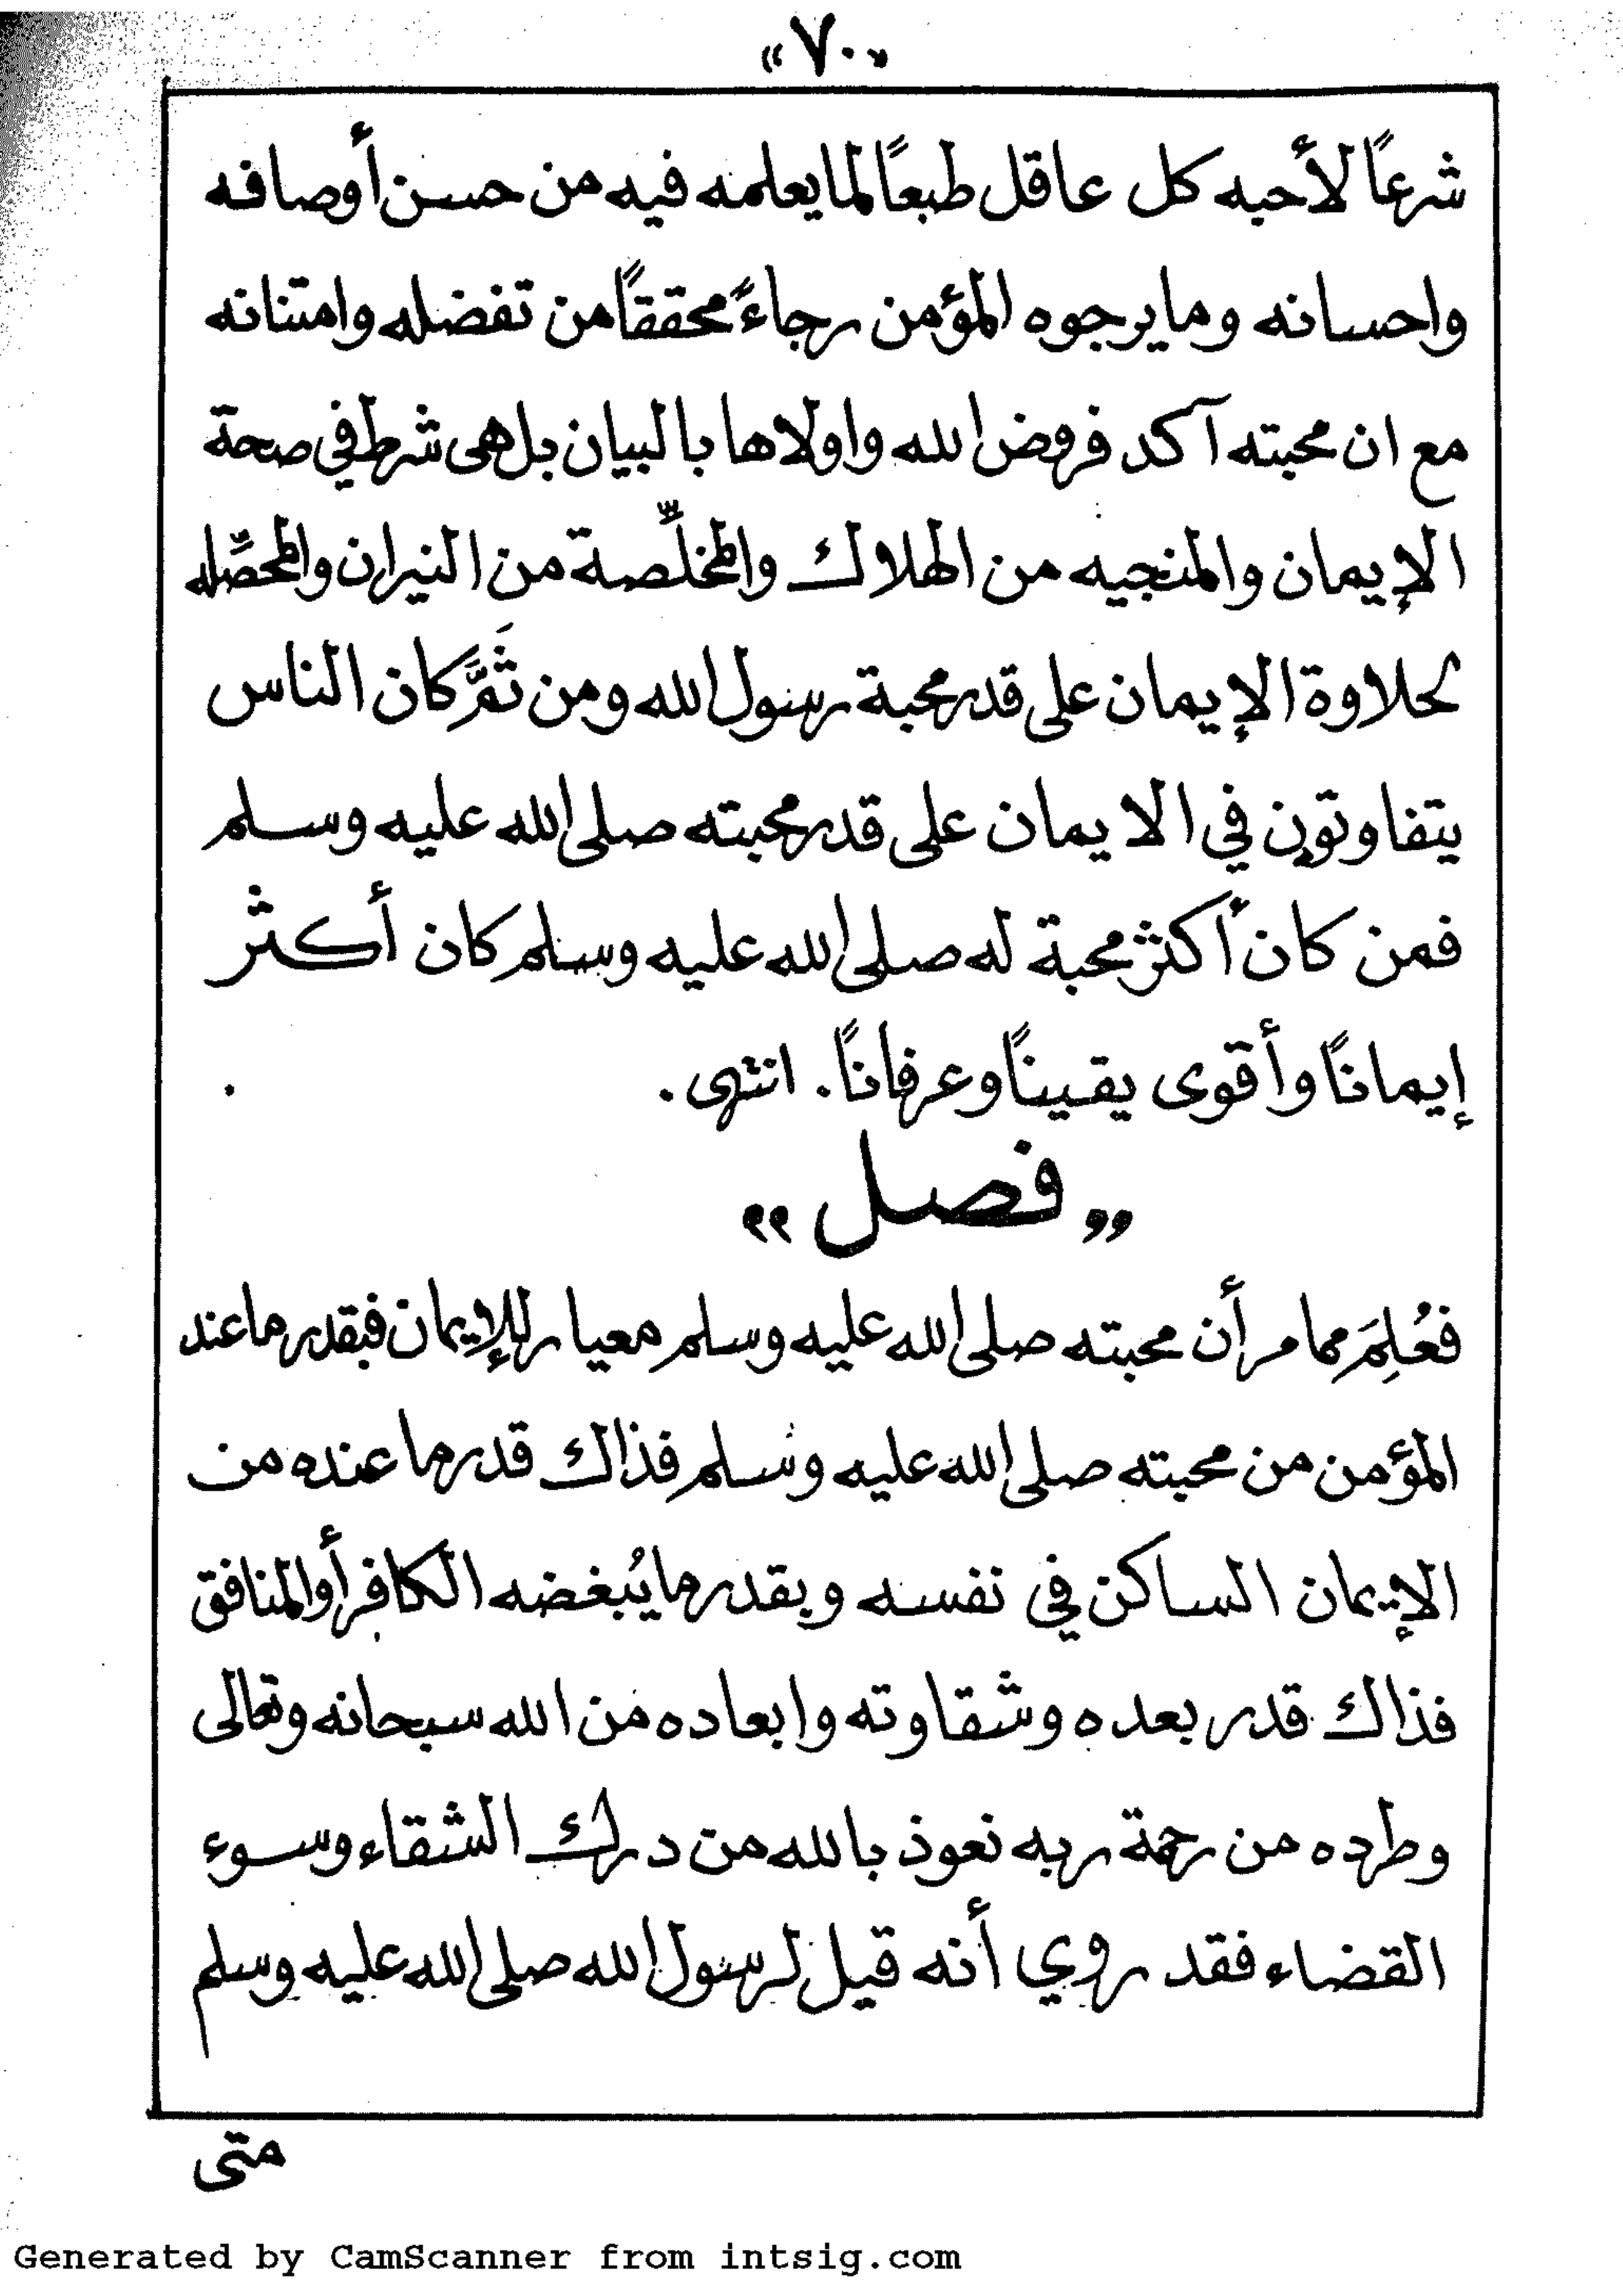 «٧٠»
شرعًا لأحبه كل عاقل طبعًا لما يعلمه فيه من حسن أوصافه
واحسانه وما يرجوه المؤمن رجاءً محققًا من تفضله وامتنانه
مع ان محبته آكد فروض الله واولاها بالبيان بل هى شرط في صحة
الإيمان والمنجيه من الهلاك والمخلّصة من النيران والمحصّله
لحلاوة الإيمان على قدر محبة رسول الله ومن ثَمَّ كان الناس
يتفاوتون في الايمان على قدر محبته صلى الله عليه وسلم
فمن كان أكثر محبة له صلى الله عليه وسلم كان أكثر
إيمانًا وأقوى يقينًا وعرفانًا. انتهى.
«فصل»
فعُلِمَ مما مر أن محبته صلى الله عليه وسلم معيار للإيمان فبقدر ما عند
المؤمن من محبته صلى الله عليه وسلم فذاك قدر ما عنده من
الإيمان الساكن في نفسه وبقدر ما يُبغضه الكافر أو المنافق
فذاك قدر بعده وشقاوته وابعاده من الله سبحانه وتعالى
وطرده من رحمة ربه نعوذ بالله من درك الشقاء وسوء
القضاء فقد روي أنه قيل لرسول الله صلى الله عليه وسلم
متى
Generated by CamScanner from intsig.com